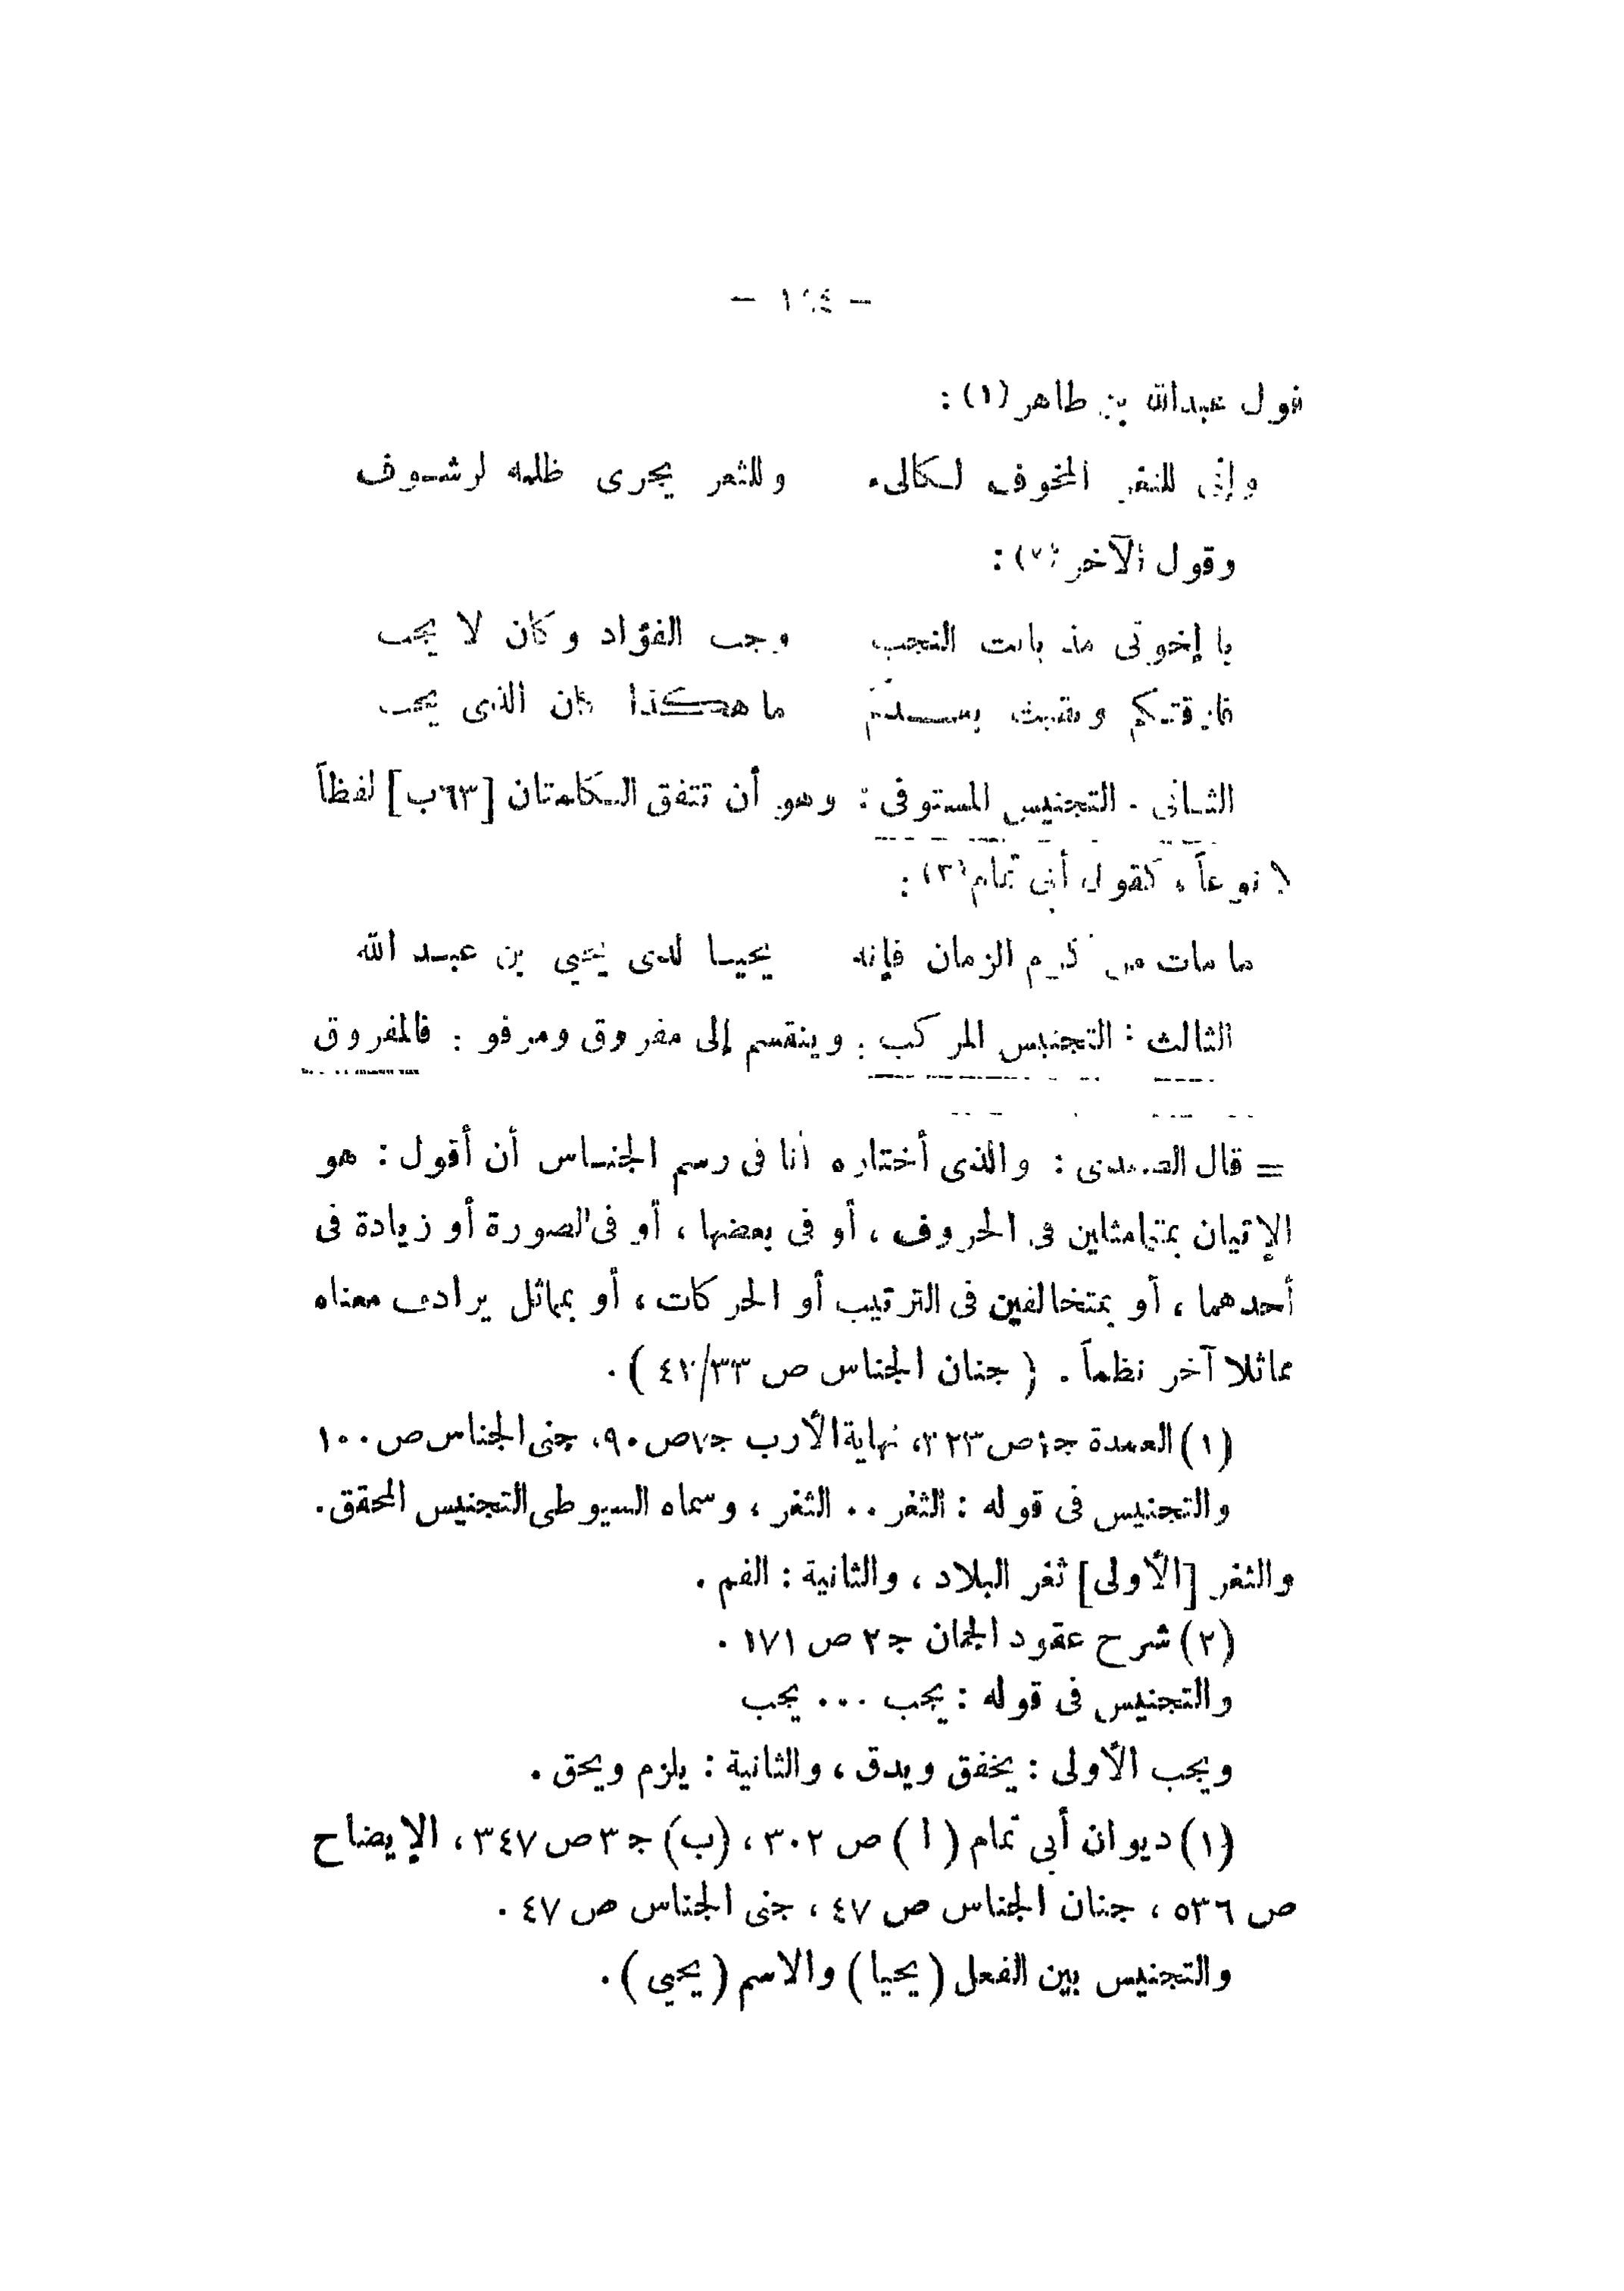 قول عبدالله بن طاهر (١) :
وإنى للثغر المخوف لكالىء وللثغر يجرى ظلمه لرشوف
وقول الآخر (٢) :
يا إخوتى مذ بانت النجب وجب الفؤاد وكان لا يجب
فارقتكم وبقيت بعدكم ما هكذا كان الذى يجب
الثانى - التجنيس المستوفى : وهو أن تتفق الكلمتان [٦٣ب] لفظاً
لا نوعاً ، كقول أبى تمام (٣) :
ما مات من كرم الزمان فإنه يحيا لدى يحيى بن عبد الله
الثالث : التجنيس المركب . وينقسم إلى مفروق ومرفو : فالمفروق
= قال الصفدى : والذى أختاره أنا فى رسم الجناس أن أقول : هو
الإتيان بمتماثلين فى الحروف ، أو فى بعضها ، أو فى الصورة أو زيادة فى
أحدهما ، أو بمتخالفين فى الترتيب أو الحركات ، أو بمماثل يرادف معناه
مماثلا آخر نظماً . ( جنان الجناس ص ٣٣/٤٢ ) .
(١) العمدة ج١ص٣٢٣، نهاية الأرب ج٧ص٩٠، جنى الجناس ص١٠٠
والتجنيس فى قوله : الثغر .. الثغر ، وسماه السيوطى التجنيس المحقق .
والثغر [الأولى] ثغر البلاد ، والثانية : الفم .
(٢) شرح عقود الجمان ج ٢ ص ١٧١ .
والتجنيس فى قوله : يجب ... يجب
ويجب الأولى : يخفق ويدق ، والثانية : يلزم ويحق .
(١) ديوان أبي تمام ( ا ) ص ٣٠٢ ، (ب) ج ٣ ص ٣٤٧ ، الإيضاح
ص ٥٣٦ ، جنان الجناس ص ٤٧ ، جنى الجناس ص ٤٧ .
والتجنيس بين الفعل ( يحيا ) والاسم ( يحيى ) .